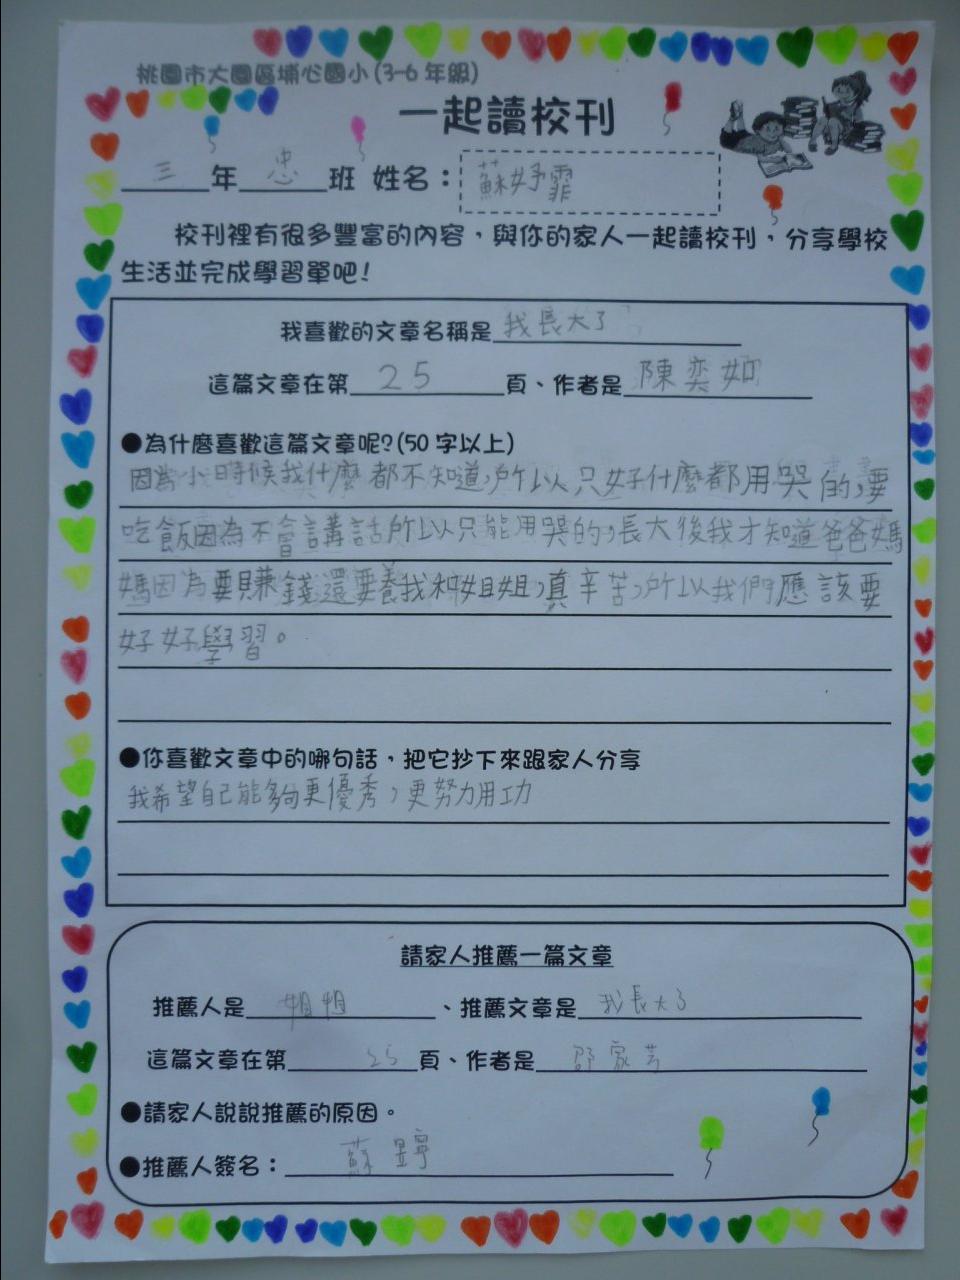 桃園市大園區埔心國小(3-6年級)
一起讀校刊
三年忠班 姓名：蘇妤霏
校刊裡有很多豐富的內容，與你的家人一起讀校刊，分享學校
生活並完成學習單吧！
我喜歡的文章名稱是我長大了
這篇文章在第25頁、作者是陳奕如
●為什麼喜歡這篇文章呢?(50字以上)
因為小時候我什麼都不知道，所以只好什麼都用哭的，要
吃飯因為不會講話所以只能用哭的，長大後我才知道爸爸媽
媽因為要賺錢還要養我和姐姐，真辛苦，所以我們應該要
好好學習。
●你喜歡文章中的哪句話，把它抄下來跟家人分享
我希望自己能夠更優秀，更努力用功
請家人推薦一篇文章
推薦人是姐姐、推薦文章是我長大了
這篇文章在第25頁、作者是家芸
●請家人說說推薦的原因。
●推薦人簽名：蘇